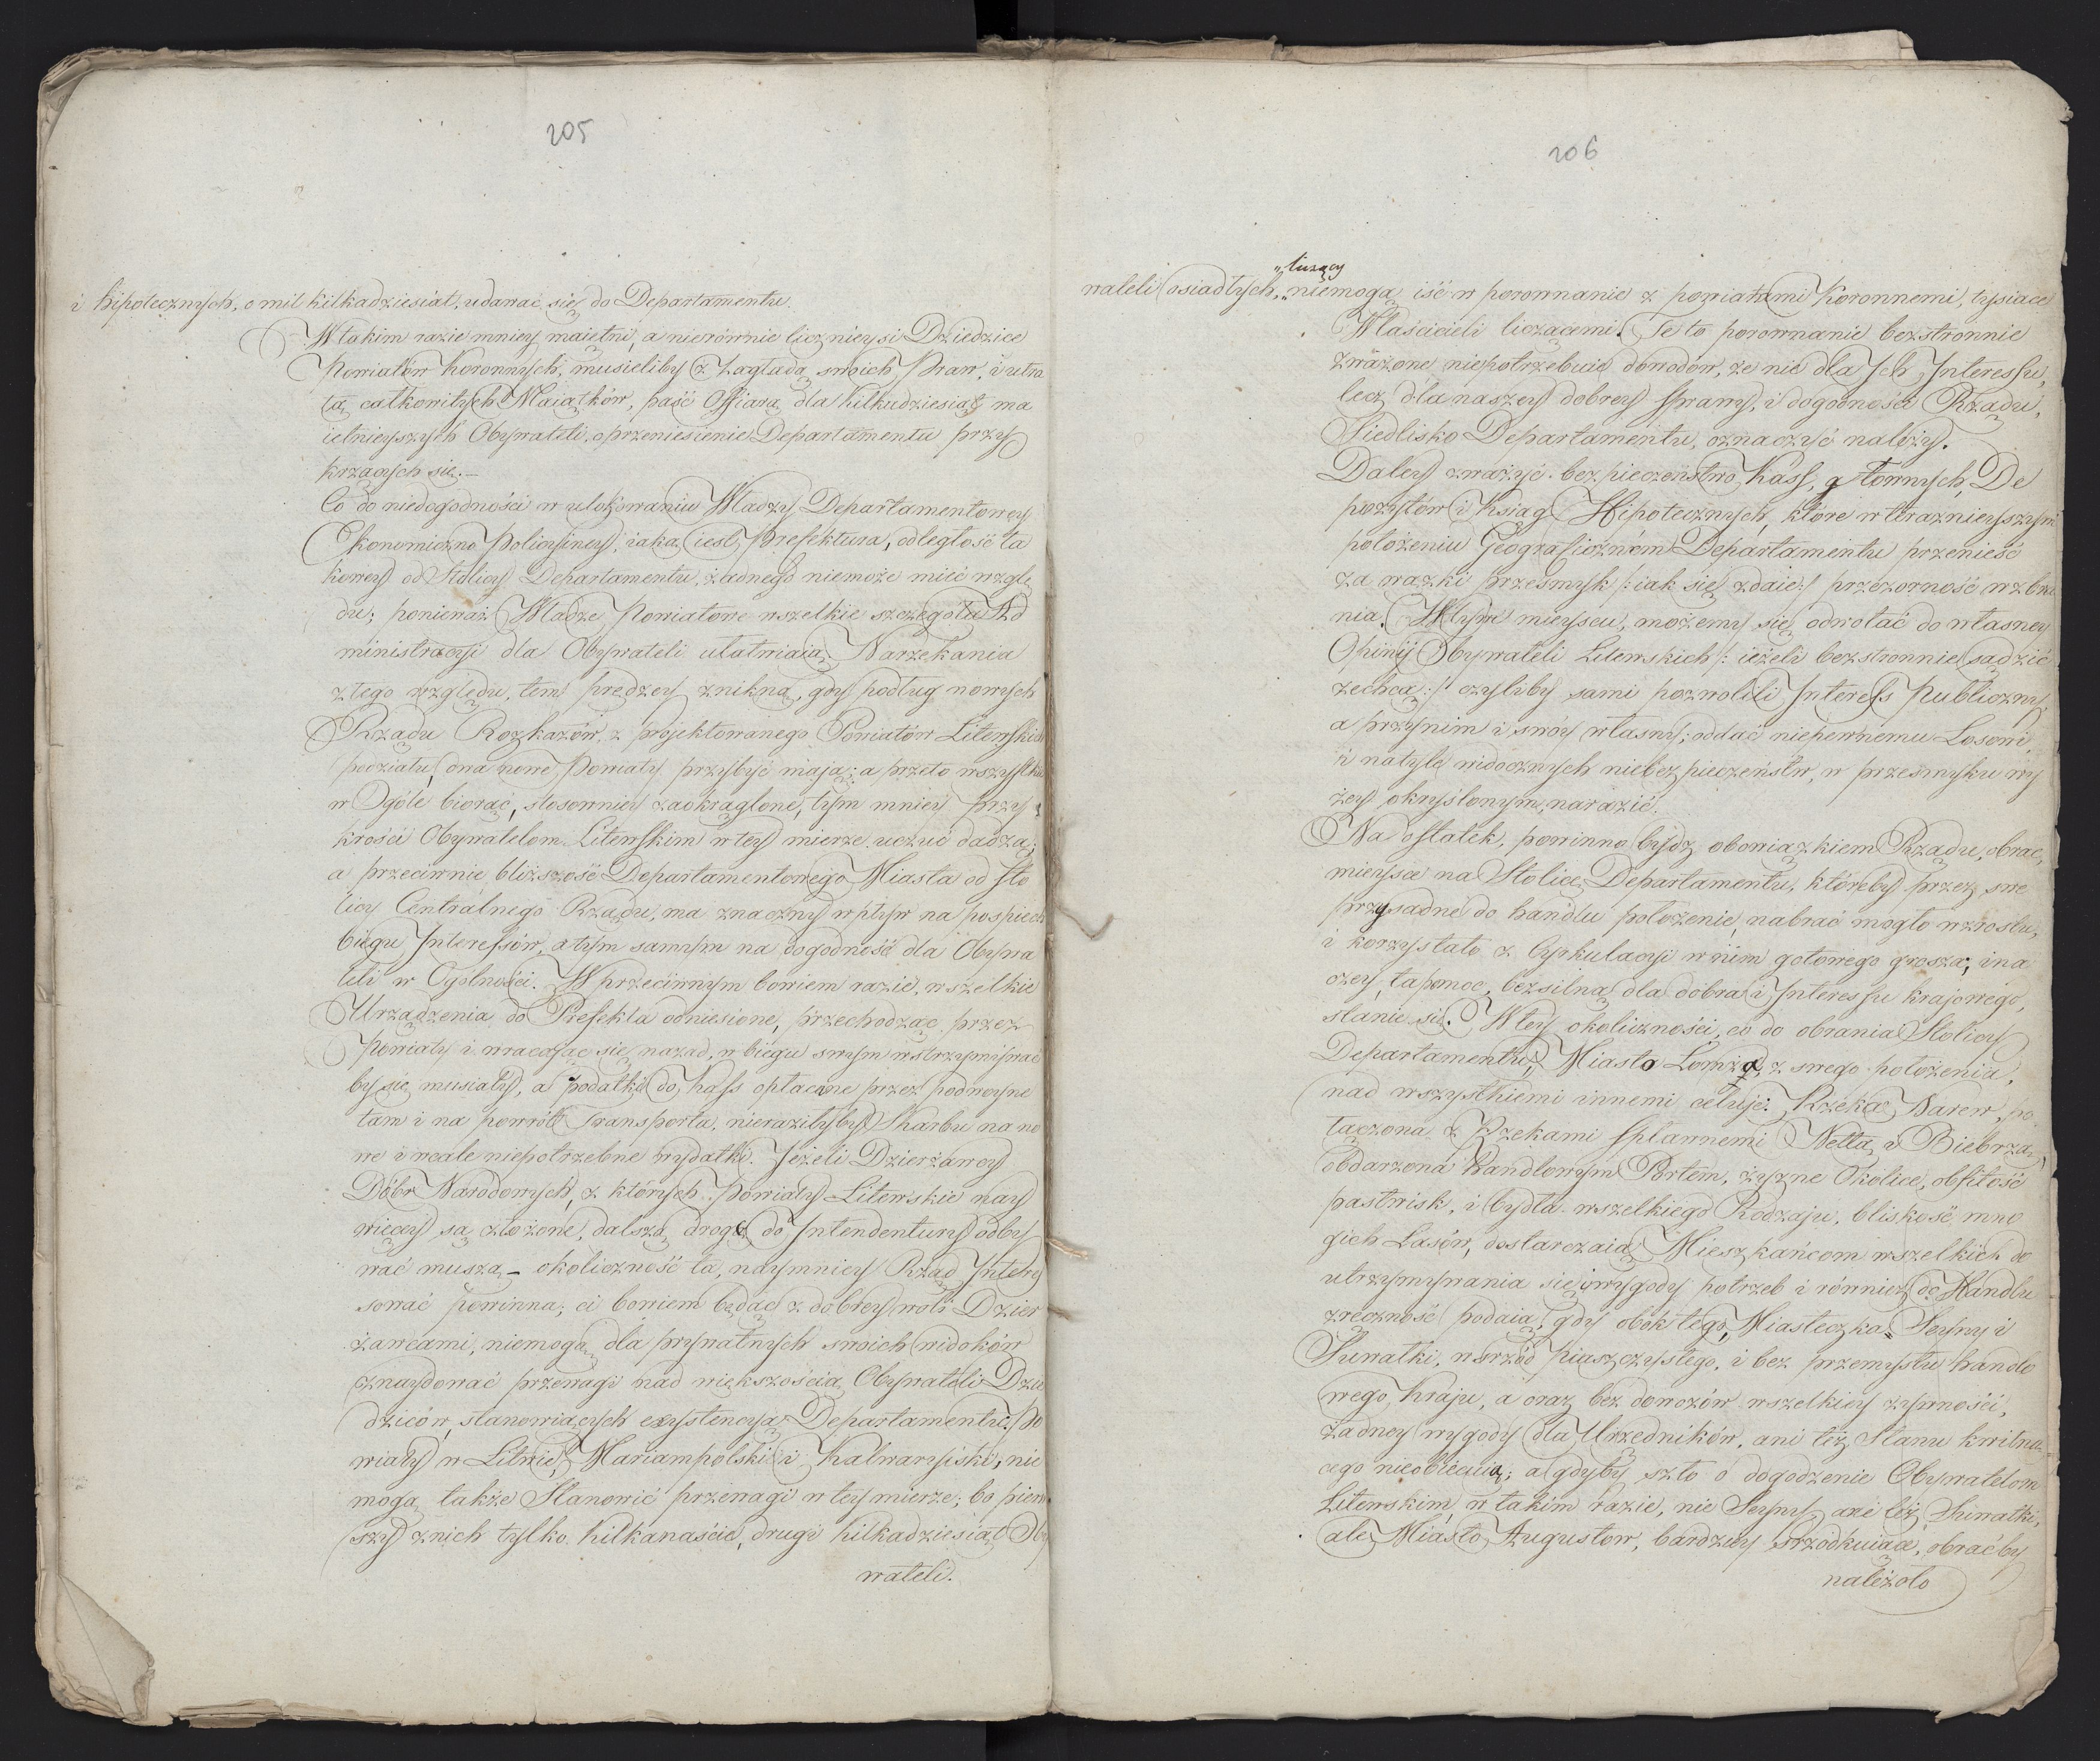 205
i hipotecznych, o mil kilkadziesiąt, udawać się do Departamentu.
W takim razie mniey maiętni, a nierównie licznieysi Dziedzice
Powiatów Koronnych, musieliby z Zagładą swoich Praw, i utra
tą całkowitych Maiątków, paść Offiarą dla kilkudziesiąt ma
iętnieyszych Obywateli, o przeniesienie Departamentu przy
krzących się.—
Co do niedogodności w ulokowaniu Władzy Departamentowey
Ekonomiczno Policyiney, iaką iest Prefektura, odległość ta
kowey od Stolicy Departamentu, żadnego niemoże mieć wzglę
du; ponieważ Władze Powiatowe wszelkie szczegóły Ad
ministracyi dla Obywateli ułatwiaią. Narzekania
z tego względu, tem prędzey znikną, gdy podług nowych
Rządu Rozkazów, z projektowanego Powiatów Litewskich
podziału, dwa nowe Powiaty przybyć maią; a przeto wszystkie
w Ogóle biorąc, stosowniey zaokrąglone, tym mniey przy
krości Obywatelom Litewskim w tey mierze uczuć dadzą;
a przeciwnie bliższość Departamentowego Miasta od Sto
licy Centralnego Rządu, ma znaczny wpływ na pospiech
biegu Interessów, a tym samym na dogodność dla Obywa
teli w Ogólności. W przeciwnym bowiem razie, wszelkie
Urządzenia do Prefekta odniesione, przechodząc przez
Powiaty i wracając się nazad, w biegu swym wstrzymywać
by się musiały, a podatki do Kass opłacone przez podwoyne
tam i na powrót Transporta, nieraziłyby Skarbu na no
we i wcale niepotrzebne wydatki. Jeżeli Dzierżawcy
Dóbr Narodowych, z których Powiaty Litewskie nay
więcey są złożone, dalszą drogę do Intendentury odby
wać muszą — okoliczność ta, naymniey Rząd Intere
sować powinna; ci bowiem będąc z dobrey woli Dzier
żawcami, niemogą dla prywatnych swoich widoków
znaydować przewagi nad większością Obywateli Dzie
dziców, stanowiących exystencyą Departamentu. Po
wiaty w Litwie, Mariampolski i Kalwaryiski, nie
mogą także Stanowić przewagi w tey mierze; bo pierw
szy z nich tylko kilkanaście, drugi kilkadziesiąt Oby
wateli.
206
„ tuzący
wateli osiadłych, „niemogą iść w porownanie z powiatami Koronnemi, tysiące
Właścicieli liczącemi. Te to porownanie bezstronnie
zważone niepotrzebuie dowodów, że nie dla Ich Interessu,
lecz dla naszey dobrey Sprawy, i dogodności Rządu,
Siedlisko Departamentu, oznaczyć należy.
Daley zważyć bezpieczeństwo Kass, głownych, De
pozytów i Ksiąg Hipotecznych, które w teraznieyszym
położeniu Geograficznem Departamentu przenieść
za wązki przesmyk /: iak się zdaie :/ przezorność wzbra
nia. W tym mieyscu, możemy się odwołać do własney
Opinij Obywateli Litewskich /: ieżeli bezstronnie sądzić
zechcą :/ czyliby sami pozwolili Interess Publiczny,
a przynim i swóy własny; oddać niepewnemu Losowi,
i na tyle widocznych niebezpieczeństw, w przesmyku wy
żey okryślonym, narazić.
Na ostatek, powinno bydz obowiązkiem Rządu, obrać,
mieysce na Stolicę Departamentu, któreby przez swe
przysadne do handlu położenie, nabrać mogło wzrostu,
i korzystało z Cyrkulacyi w nim gotowego grosza, ina
czey, ta pomoc, bezsilną dla dobra i Interessu krajowego,
stanie się. W tey okoliczności, co do obrania Stolicy
Departamentu, Miasto Łomża, z swego położenia,
nad wszystkiemi innemi celuje. Rzeka Narew, po
łączona z Rzekami spławnemi Nettą i Biebrzą,
obdarzona Handlowym Portem, żyzne Okolice, obfitość
pastwisk, i bydła wszelkiego Rodzaju, bliskość mno
gich Lasów, dostarczaią Mieszkańcom wszelkich do
utrzymywania się i wygody potrzeb i również do Handlu
zręczność podaią, gdy obok tego, Miasteczka, Seyny i
Suwałki, wsrzód piaszczystego, i bez przemysłu handlo
wego, Kraju, a oraz bez dowozów wszelkiey żywności,
żadney wygody dla Urzedników, ani też Stanu kwitną
cego nieobiecuią; a gdyby szło o dogodzenie Obywatelom
Litewskim, w takim razie, nie Seyny, ani też Suwałki,
ale Miasto Augustow, bardziey srzodkuiące, obraćby
należało